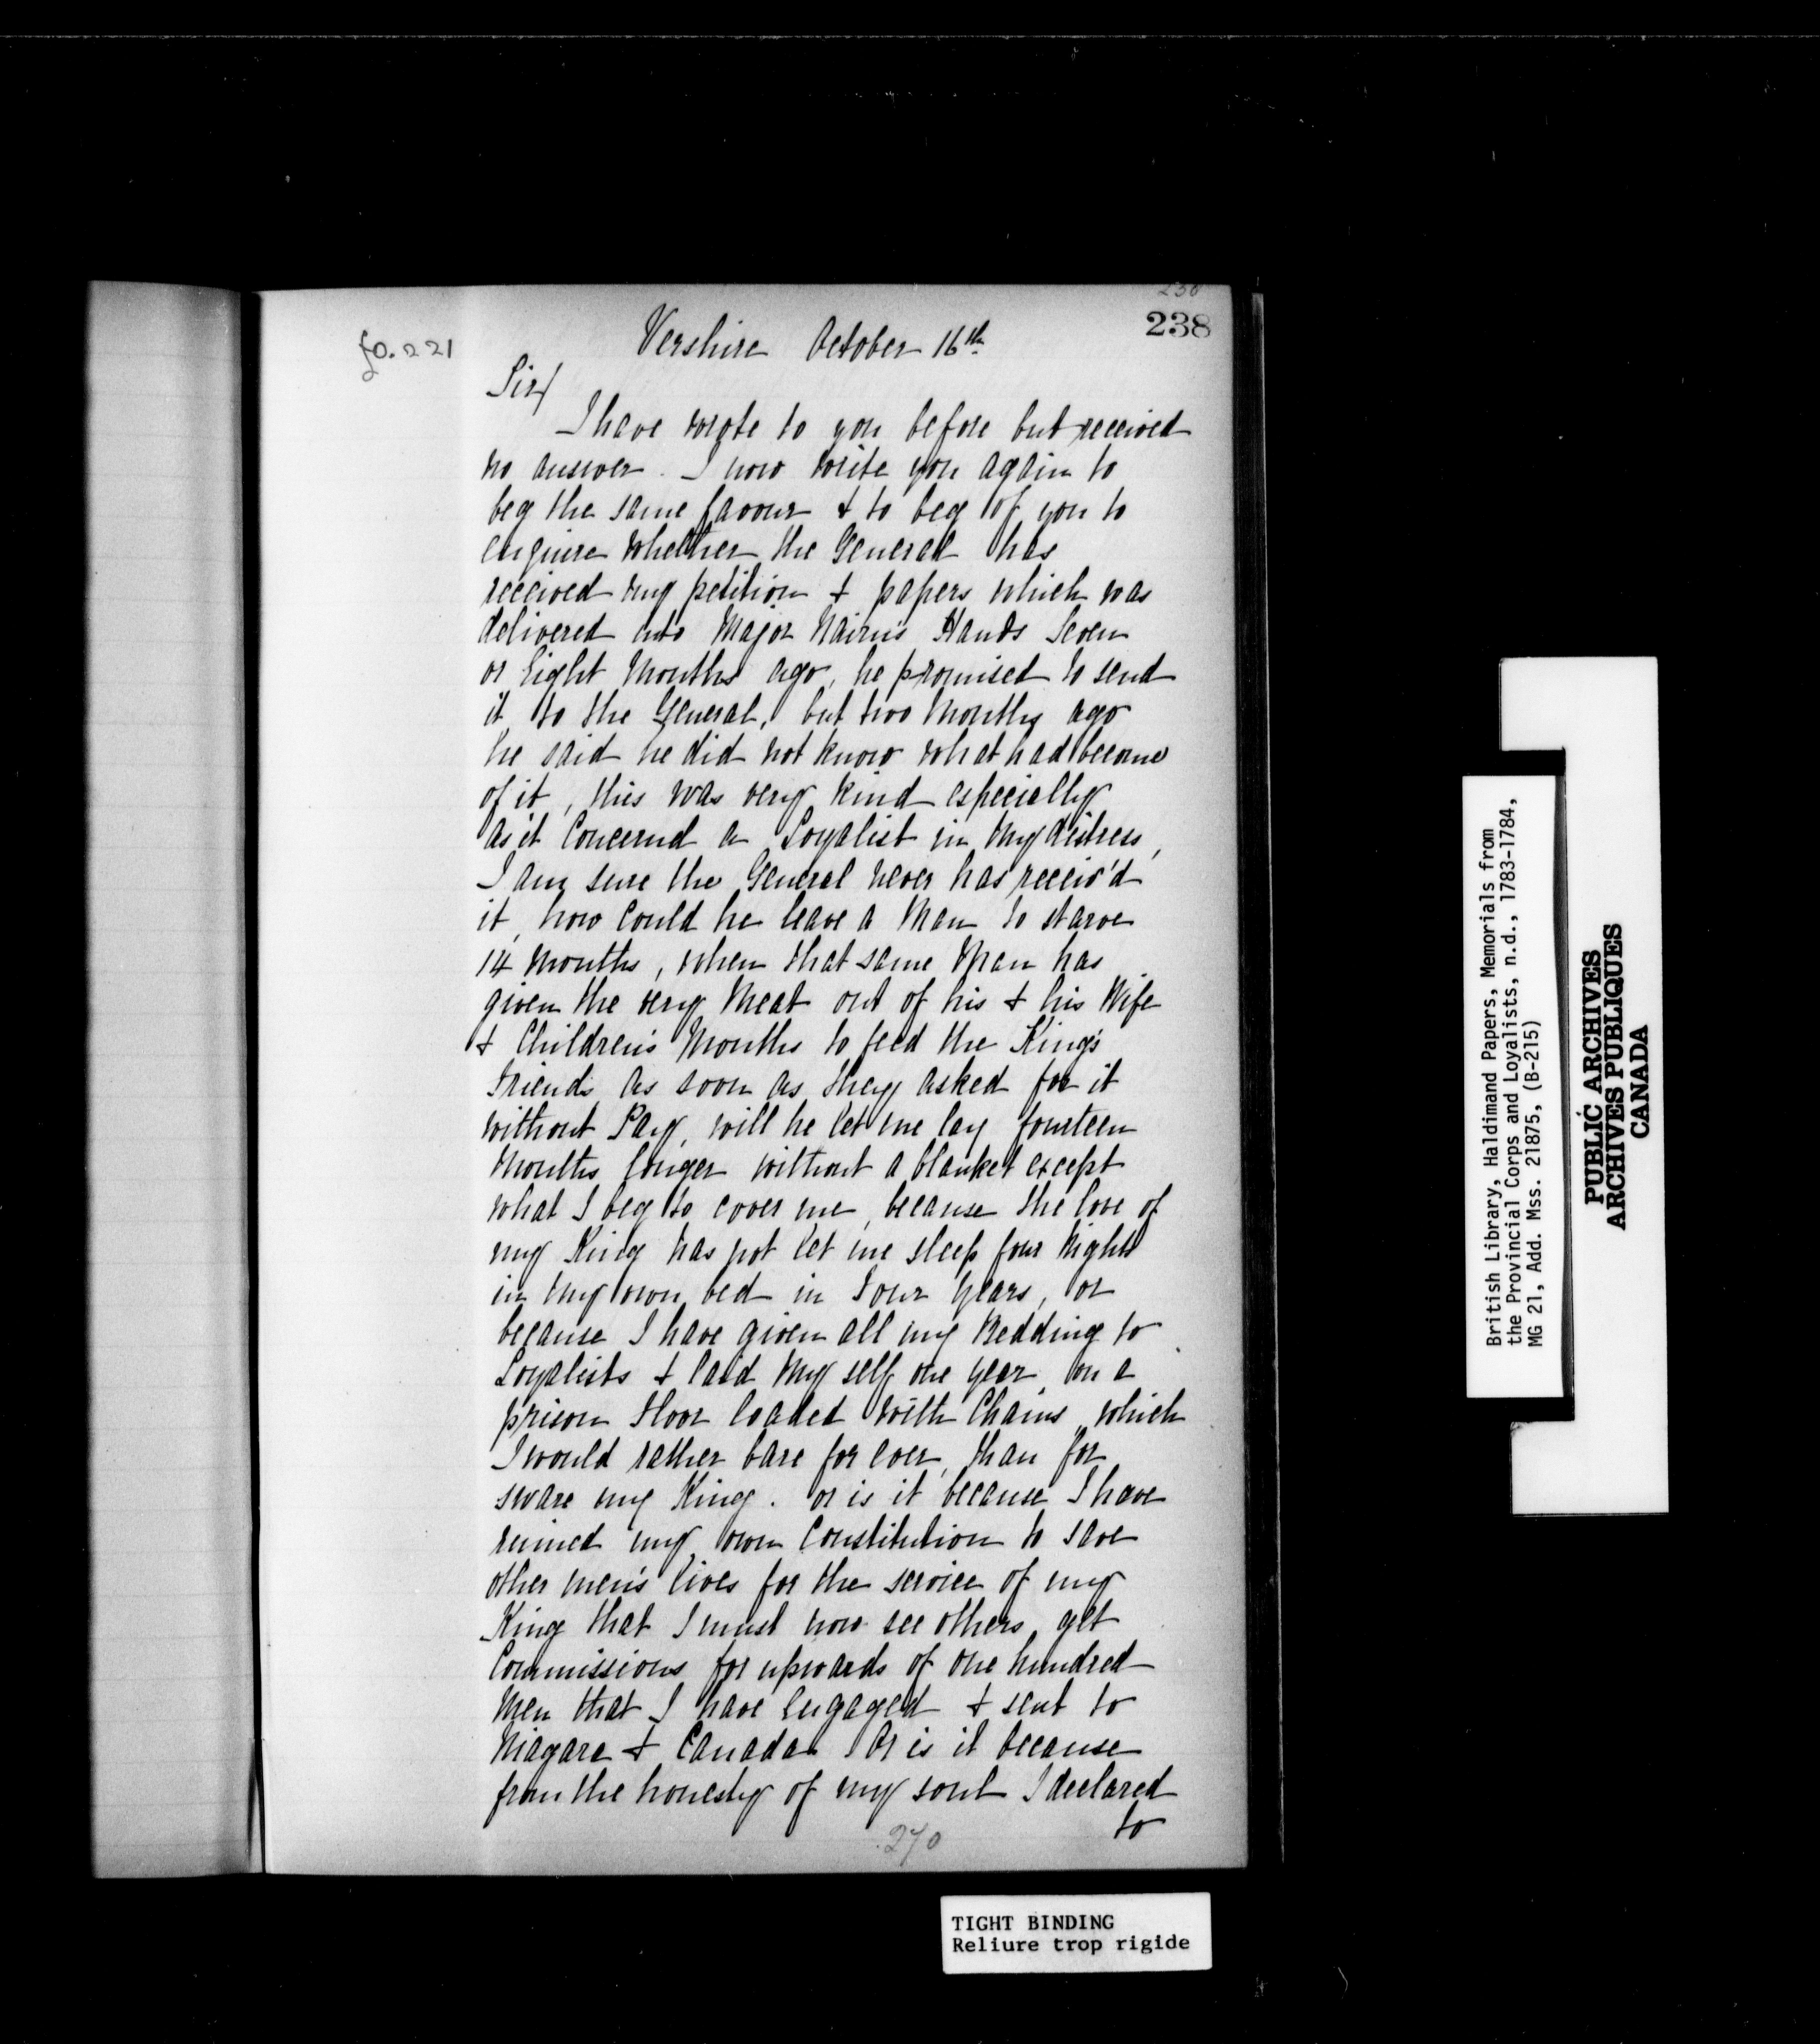 238
fo. 221
Vershire October 16th
Sir/
I have wrote to you before but received
no answer. I now write you again to
beg the same favour & to beg of you to
enquire whether the General has
received my petition & papers which was
delivered into Major Nairn's Hands Seven
or Eight Months ago, he promised to send
it to the General, but two months ago
he said he did not know what had become
of it, this was very kind especially
as it Concernd a Loyalist in my distress,
I am sure the General never has receiv'd
it, how Could he leave a Man to starve
14 Months, when that same Man has
given the very Meat out of his & his Wife
& Children's Mouths to feed the King's
Friends as soon as they asked for it
without Pay, will he let me lay fourteen
Months longer without a blanket except
what I beg to cover me, because the love of
my King has not let me sleep four Nights
in my own bed in Four Years, or
because I have given all my Bedding to
Loyalists & laid my self one year on a
prison Floor loaded with Chains which
I would rather bare for ever, than for
sware my King. or is it because I have
ruined my own Constitution to save
other men's lives for the service of my
King that I must now see others get
Commissions for upwards of one hundred
Men that I have Engaged & sent to
Niagara & Canada. Or is it because
from the honesty of my soul I declared
to
270
British Library, Haldimand Papers, Memorials from
the Provincial Corps and Loyalists, n.d., 1783-1784,
MG 21, Add. Mss. 21875, (B-215)
PUBLIC ARCHIVES
ARCHIVES PUBLIQUES
CANADA
TIGHT BINDING
Reliure trop rigide